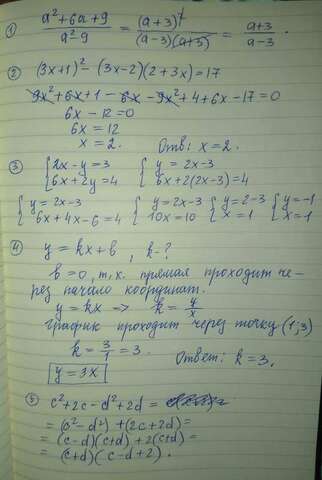 ① (a²+6a+9)/(a²-9) = (a+3)²/((a-3)(a+3)) = (a+3)/(a-3).
② (3x+1)² - (3x-2)(2+3x) = 17
9x²+6x+1 - 6x - 9x²+4+6x-17=0
6x-12=0
6x=12
x=2. Отв: x=2.
③ {2x-y=3 {y=2x-3
{6x+2y=4 {6x+2(2x-3)=4
{y=2x-3 {y=2x-3 {y=2-3 {y=-1
{6x+4x-6=4 {10x=10 {x=1 {x=1
④ y=kx+b, k-?
b=0, т.к. прямая проходит че-
рез начало координат.
y=kx => k=y/x
график проходит через точку (1;3)
k=3/1=3. Ответ: k=3.
y=3x
⑤ c²+2c-d²+2d =
= (c²-d²)+(2c+2d)=
= (c-d)(c+d)+2(c+d)=
= (c+d)(c-d+2).